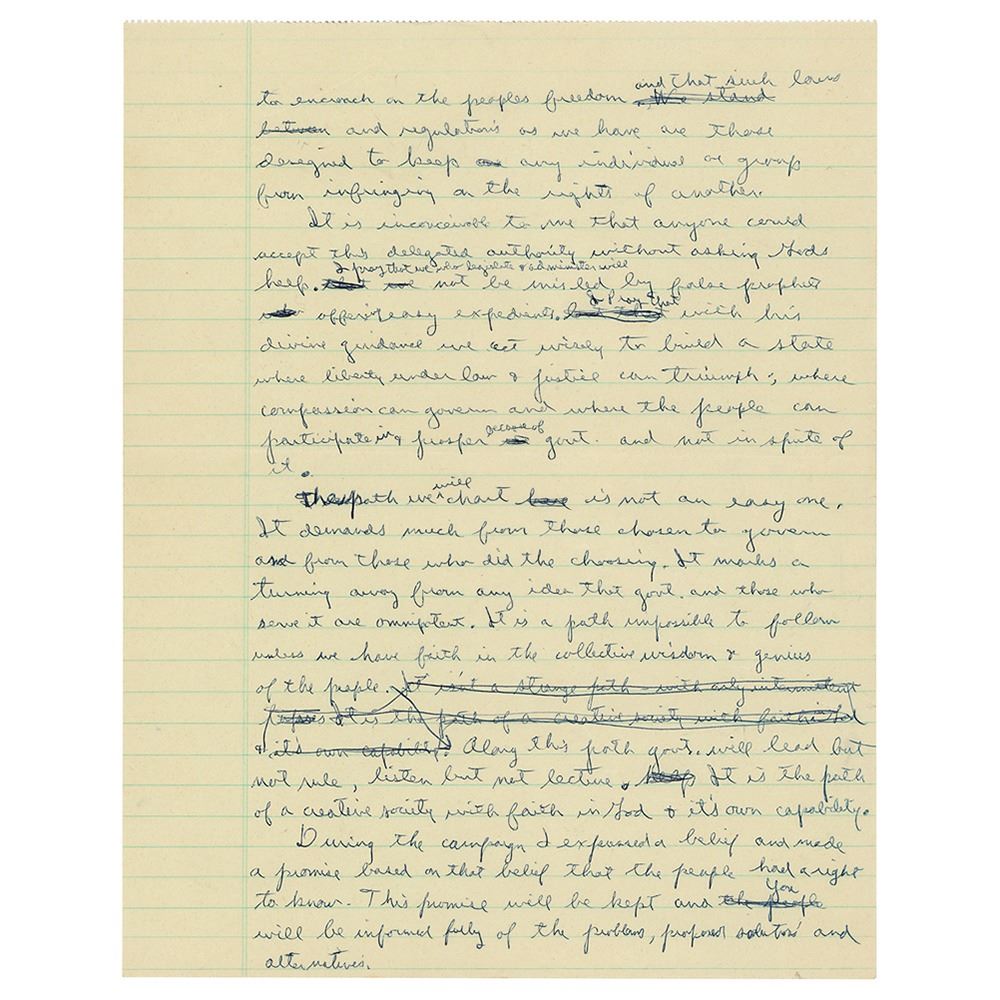 and that such laws
to encroach on the peoples freedom We stand
between and regulations as we have are those
designed to keep any individual or group
from infringing on the rights of another.
It is inconceivable to me that anyone could
accept this delegated authority without asking Gods
I pray that we who legislate & administer will
help. that we not be misled by false prophets
I pray that
who offering easy expedients. but that with his
divine guidance we act wisely to build a state
where liberty under law & justice can triumph; where
compassion can govern and where the people can
because of
participate in & prosper govt. and not in spite of
it.
will
The path we chart here is not an easy one.
It demands much from those chosen to govern
and from those who did the choosing. It marks a
turning away from any idea that govt. and those who
serve it are omnipotent. It is a path impossible to follow
unless we have faith in the collective wisdom & genius
of the people. It isn't a strange path – with only intermittent
It is the path of a creative society with faith in God
& it's own capability. Along this path govt. will lead but
not rule, listen but not lecture. It is the path
of a creative society with faith in God & it's own capability.
During the campaign I expressed a belief and made
a promise based on that belief that the people had a right
You
to know. This promise will be kept and the people
will be informed fully of the problems, proposed solutions and
alternatives.